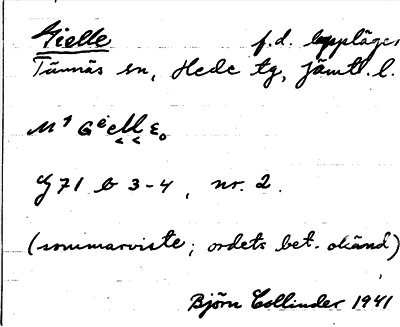 Gielle f.d. lappläger
Tännäs sn, Hede tg, Jämtl. l.
J 71 b 3-4, nr. 2.
(sommarviste; ordets bet. okänd)
Björn Collinder 1941